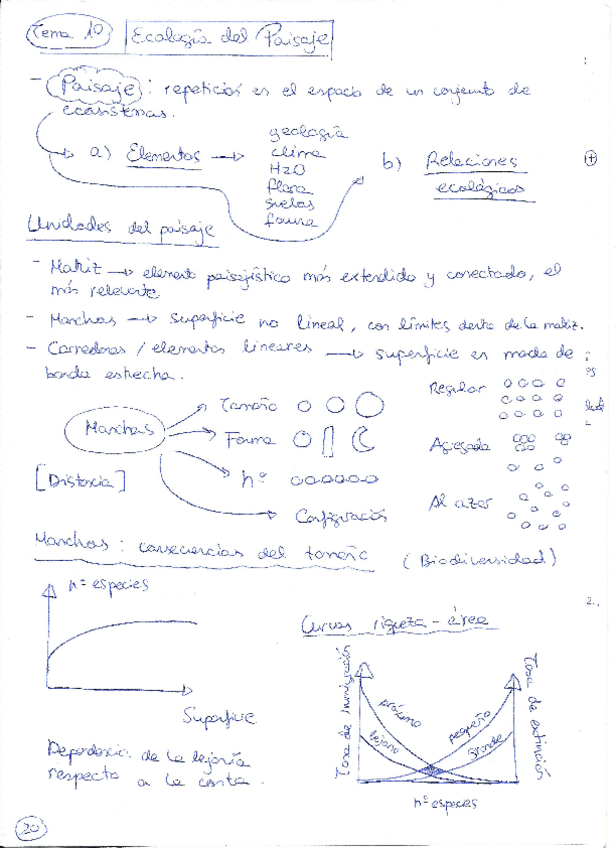 Tema 10 Ecología del Paisaje
- Paisaje: repetición en el espacio de un conjunto de
ecosistemas.
a) Elementos → geología
clima
H2O
flora
suelos
fauna
b) Relaciones
ecológicas
Unidades del paisaje
- Matriz → elemento paisajístico más extendido y conectado, el
más relevante
- Manchas → superficie no lineal, con límites dentro de la matriz.
- Corredores / elementos lineares → superficie en modo de
banda estrecha.
Manchas
Tamaño
Forma
nº
Configuración
[Distancia]
Regular
Agregada
Al azar
Manchas: consecuencias del tamaño (Biodiversidad)
nº especies
Superficie
Dependencia de la lejanía
respecto a la costa.
Curvas riqueza - área
Tasa de inmigración
próximo
lejano
pequeño
grande
Tasa de extinción
nº especies
20